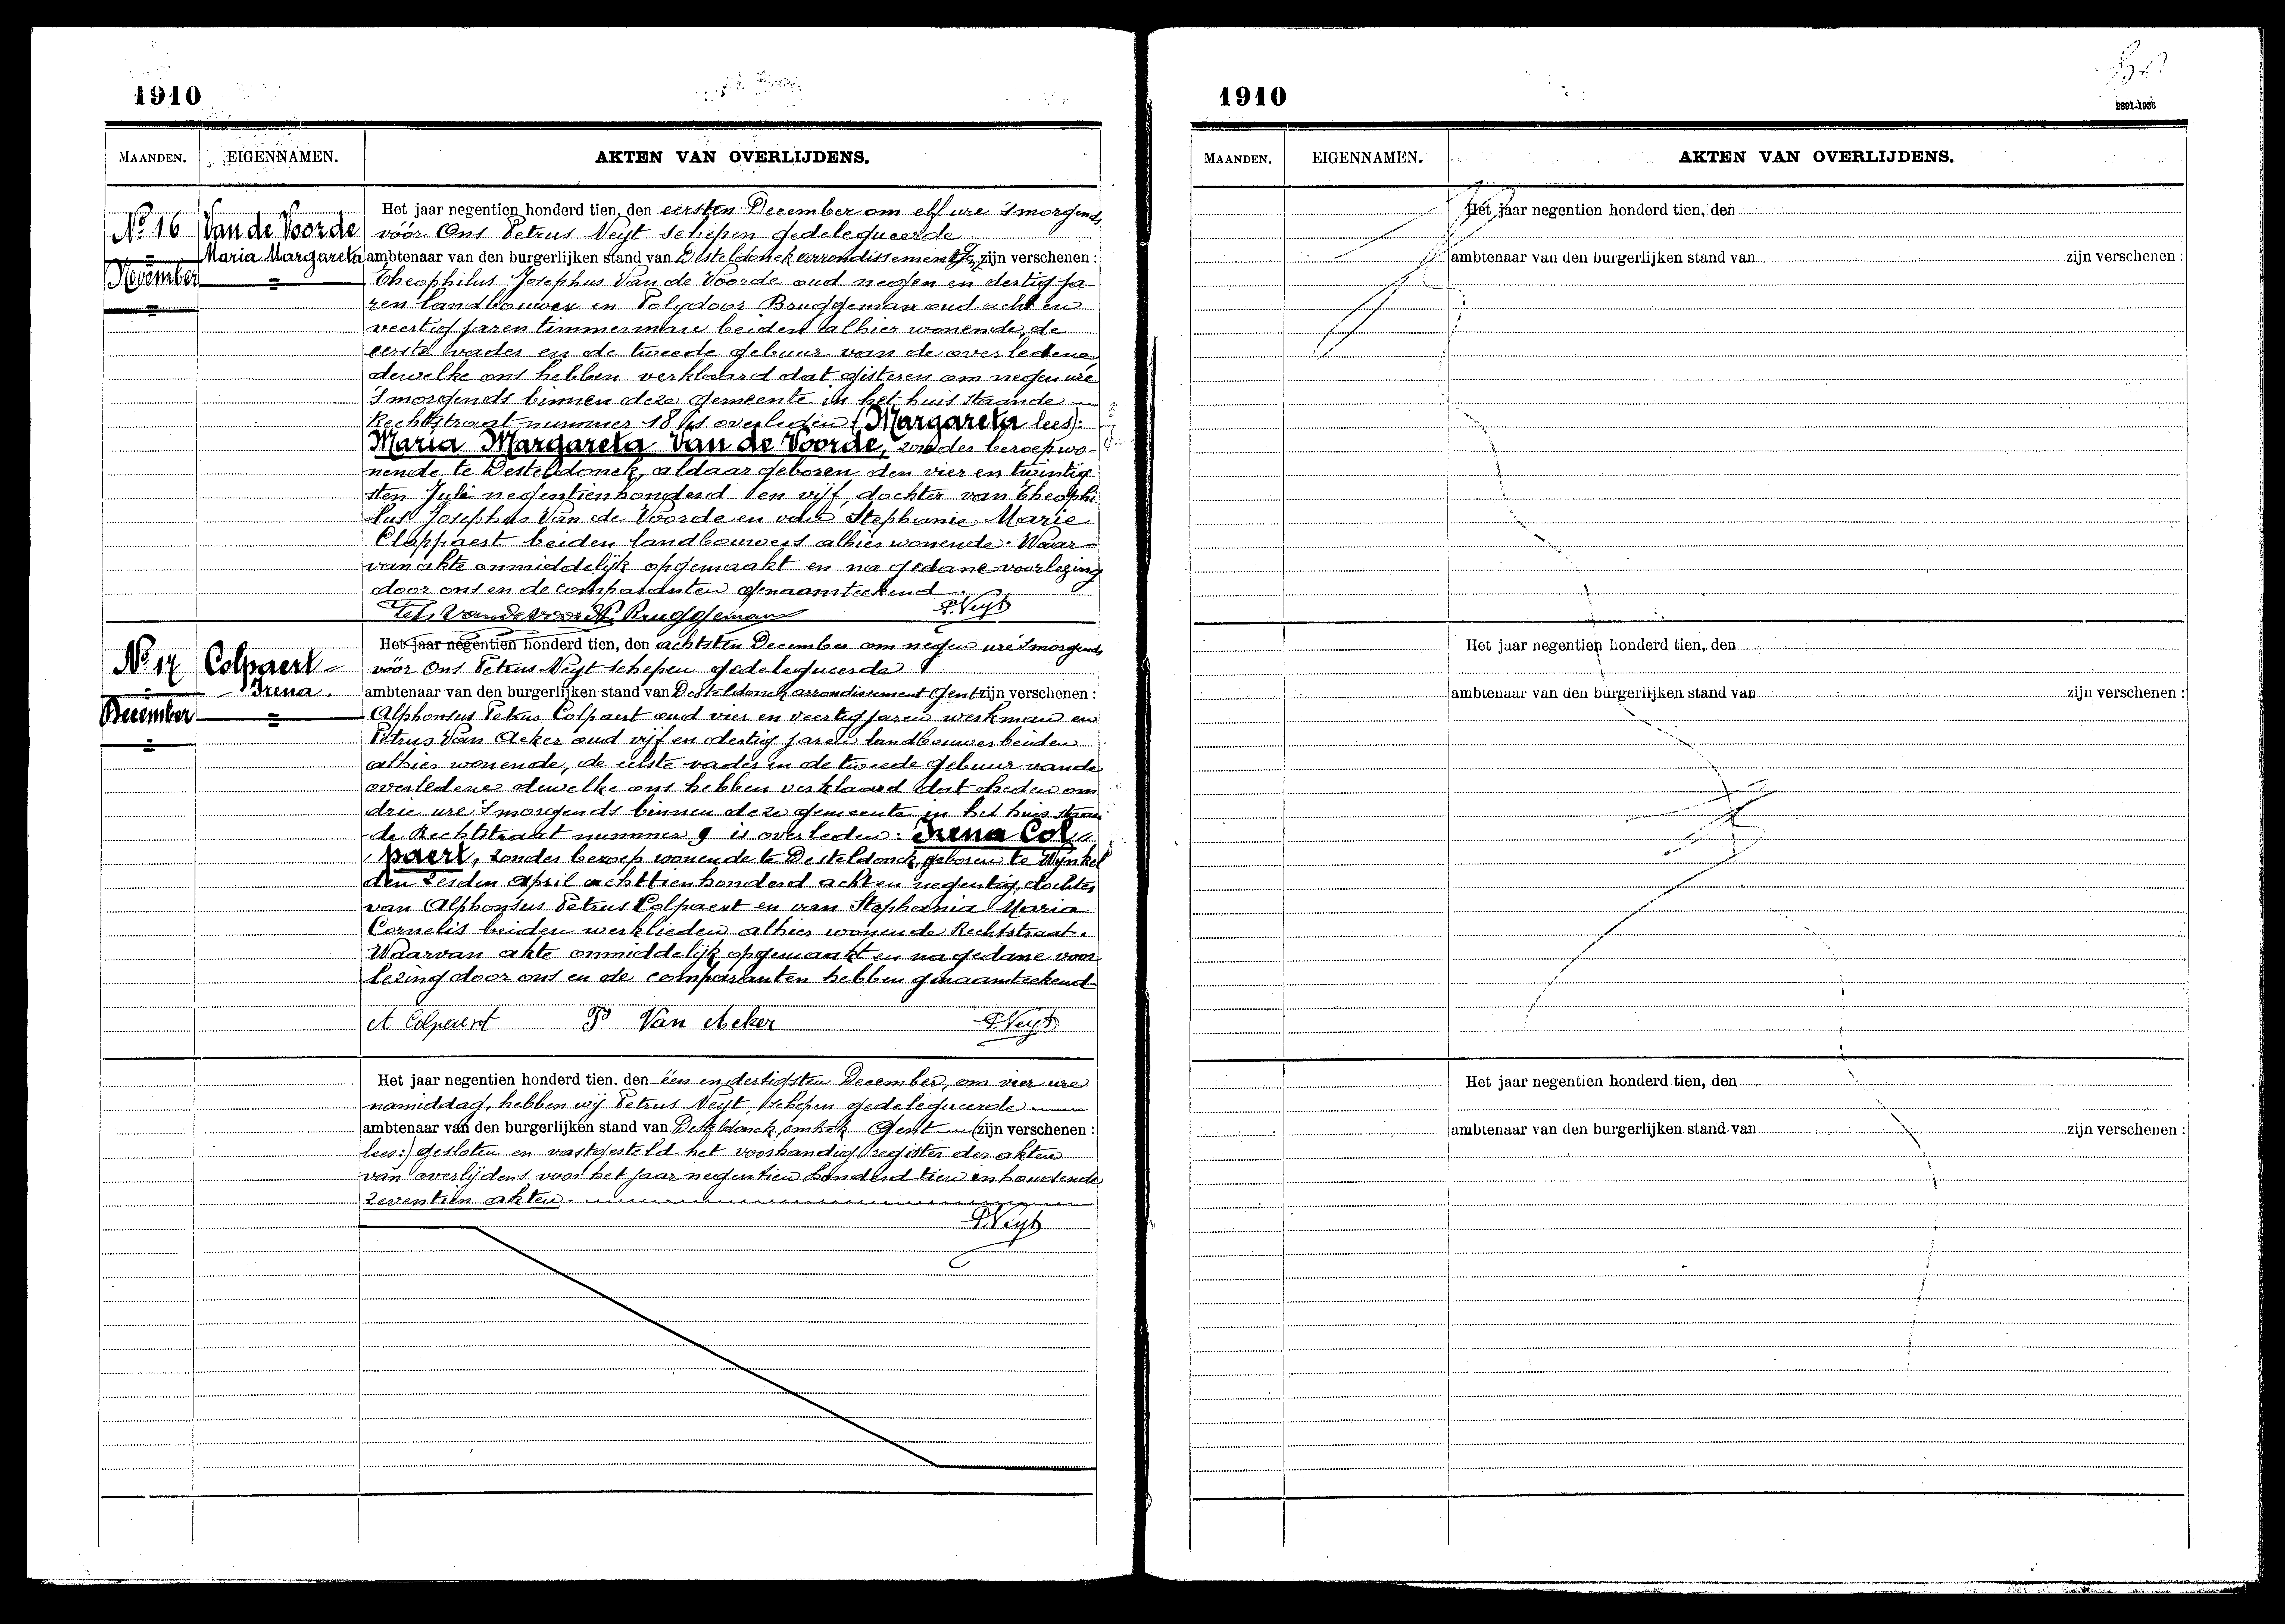 1910
MAANDEN.
EIGENNAMEN.
AKTEN VAN OVERLIJDENS.
No 16
November
Van de Voorde
Maria Margareta
Het jaar negentien honderd tien, den eersten December om elf ure 's morgends
vóór Ons Petrus Neyt schepen gedelegueerde
ambtenaar van den burgerlijken stand van Desteldonck arrondissement Gent zijn verschenen :
Theophilus Josephus Van de Voorde oud negen en dertig ja-
ren landbouwer en Polydoor Bruggeman oud acht en
veertig jaren timmerman beiden alhier wonende, de
eerste vader en de tweede gebuur van de overledene
dewelke ons hebben verklaard dat gisteren om negen ure
's morgends binnen deze gemeente in het huis staande
Rechtstraat nummer 18 is overleden (Margareta lees):
Maria Margareta Van de Voorde, zonder beroep wo-
nende te Desteldonck, aldaar geboren den vier en twintig
sten Juli negentienhonderd en vijf, dochter van Theophi
lus Josephus Van de Voorde en van Stephanie Marie
Clappaert beiden landbouwers alhier wonende. Waar-
van akte onmiddelijk opgemaakt en na gedane voorlezing
door ons en de comparanten genaamteekend.
Vandevoorde Bruggeman P. Neyt
No 17
December
Colpaert
Irena.
Het jaar negentien honderd tien, den achtsten December om negen ure 's morgends
vóór Ons Petrus Neyt schepen gedelegueerde
ambtenaar van den burgerlijken stand van Desteldonck arrondissement Gent zijn verschenen :
Alphonsus Petrus Colpaert oud vier en veertig jaren werkman en
Petrus Van Acker oud vijf en dertig jaren landbouwer beiden
alhier wonende, de eerste vader en de tweede gebuur van de
overledene dewelke ons hebben verklaard dat heden om
drie ure 's morgends binnen deze gemeente in het huis staan
de Rechtstraat nummer 9 is overleden: Irena Col
paert, zonder beroep wonende te Desteldonck, geboren te Wynkel
den zesden April achttienhonderd acht en negentig, dochter
van Alphonsus Petrus Colpaert en van Stephania Maria
Cornelis beiden werklieden alhier wonende Rechtstraat.
Waarvan akte onmiddelijk opgemaakt en na gedane voor
lezing door ons en de comparanten hebben genaamteekend.
A Colpaert P Van Acker P. Neyt
Het jaar negentien honderd tien, den één en dertigsten December, om vier ure
namiddag, hebben wij Petrus Neyt, schepen gedelegueerde
ambtenaar van den burgerlijken stand van Desteldonck, Gent (zijn verschenen :
lees:) gesloten en vastgesteld het voorhandig register der akten
van overlijdens voor het jaar negentien honderd tien inhoudende
zeventien akten.
P. Neyt
1910
2891-1936
MAANDEN.
EIGENNAMEN.
AKTEN VAN OVERLIJDENS.
Het jaar negentien honderd tien, den
ambtenaar van den burgerlijken stand van zijn verschenen :
Het jaar negentien honderd tien, den
ambtenaar van den burgerlijken stand van zijn verschenen :
Het jaar negentien honderd tien, den
ambtenaar van den burgerlijken stand van zijn verschenen :